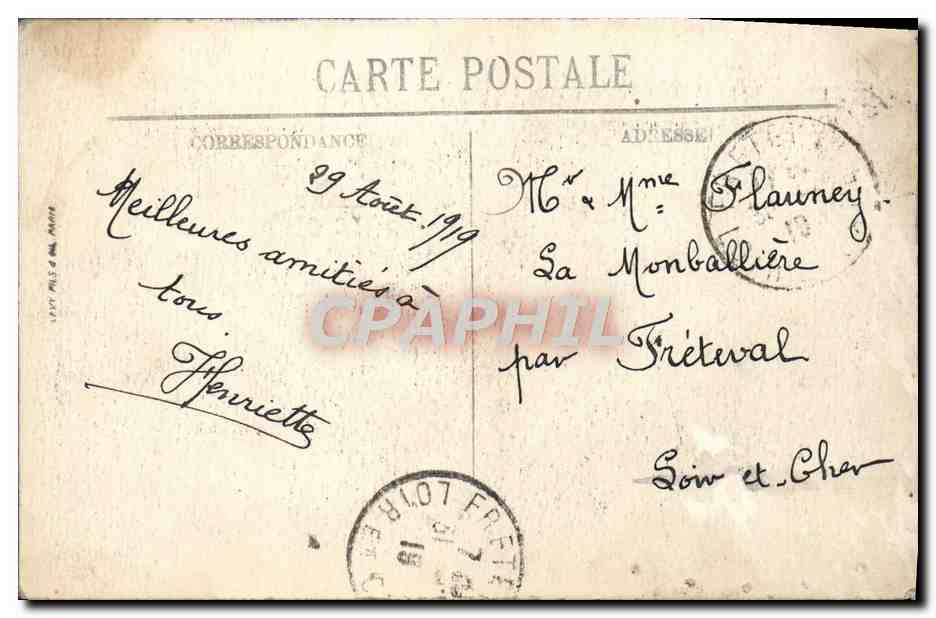 CARTE POSTALE
CORRESPONDANCE
ADRESSE
29 Août 1919
Meilleures amitiés à
tous.
Henriette
Mr & Mme Flauney
La Monballière
par Fréteval
Loir et-Cher
LEVY FILS & Cie PARIS
CPAPHIL
FRETE
LOIR ET C